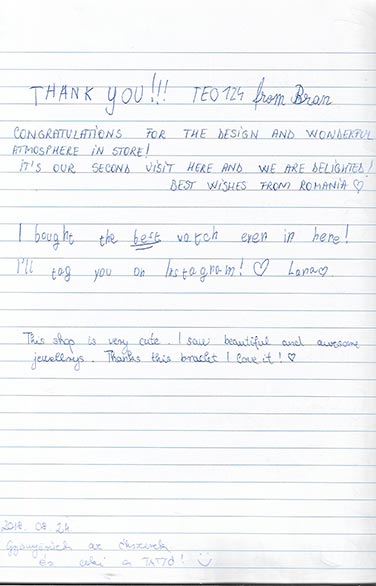 THANK YOU!!! TEO 124 from Bran
CONGRATULATIONS FOR THE DESIGN AND WONDERFUL
ATMOSPHERE IN STORE!
IT'S OUR SECOND VISIT HERE AND WE ARE DELIGHTED!
BEST WISHES FROM ROMANIA ♡
I bought the best watch ever in here!
I'll tag you on Instagram! ♡ Lana♡
This shop is very cute. I saw beautiful and awesome
jewellerys. Thanks this braslet I love it! ♡
08. 24.
Gyönyörűek az ékszerek
és a